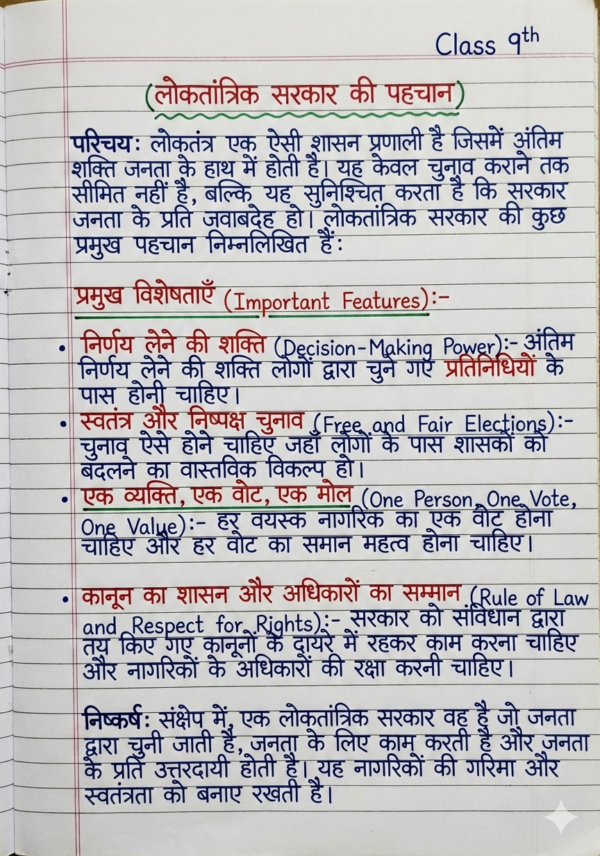 Class 9th
(लोकतांत्रिक सरकार की पहचान)
परिचय: लोकतंत्र एक ऐसी शासन प्रणाली है जिसमें अंतिम
शक्ति जनता के हाथ में होती है। यह केवल चुनाव कराने तक
सीमित नहीं है, बल्कि यह सुनिश्चित करता है कि सरकार
जनता के प्रति जवाबदेह हो। लोकतांत्रिक सरकार की कुछ
प्रमुख पहचान निम्नलिखित हैं:
प्रमुख विशेषताएँ (Important Features):-
• निर्णय लेने की शक्ति (Decision-Making Power):- अंतिम
निर्णय लेने की शक्ति लोगों द्वारा चुने गए प्रतिनिधियों के
पास होनी चाहिए।
• स्वतंत्र और निष्पक्ष चुनाव (Free and Fair Elections):-
चुनाव ऐसे होने चाहिए जहाँ लोगों के पास शासकों को
बदलने का वास्तविक विकल्प हो।
• एक व्यक्ति, एक वोट, एक मोल (One Person, One Vote,
One Value):- हर वयस्क नागरिक का एक वोट होना
चाहिए और हर वोट का समान महत्व होना चाहिए।
• कानून का शासन और अधिकारों का सम्मान (Rule of Law
and Respect for Rights):- सरकार को संविधान द्वारा
तय किए गए कानूनों के दायरे में रहकर काम करना चाहिए
और नागरिकों के अधिकारों की रक्षा करनी चाहिए।
निष्कर्ष: संक्षेप में, एक लोकतांत्रिक सरकार वह है जो जनता
द्वारा चुनी जाती है, जनता के लिए काम करती है और जनता
के प्रति उत्तरदायी होती है। यह नागरिकों की गरिमा और
स्वतंत्रता को बनाए रखती है।